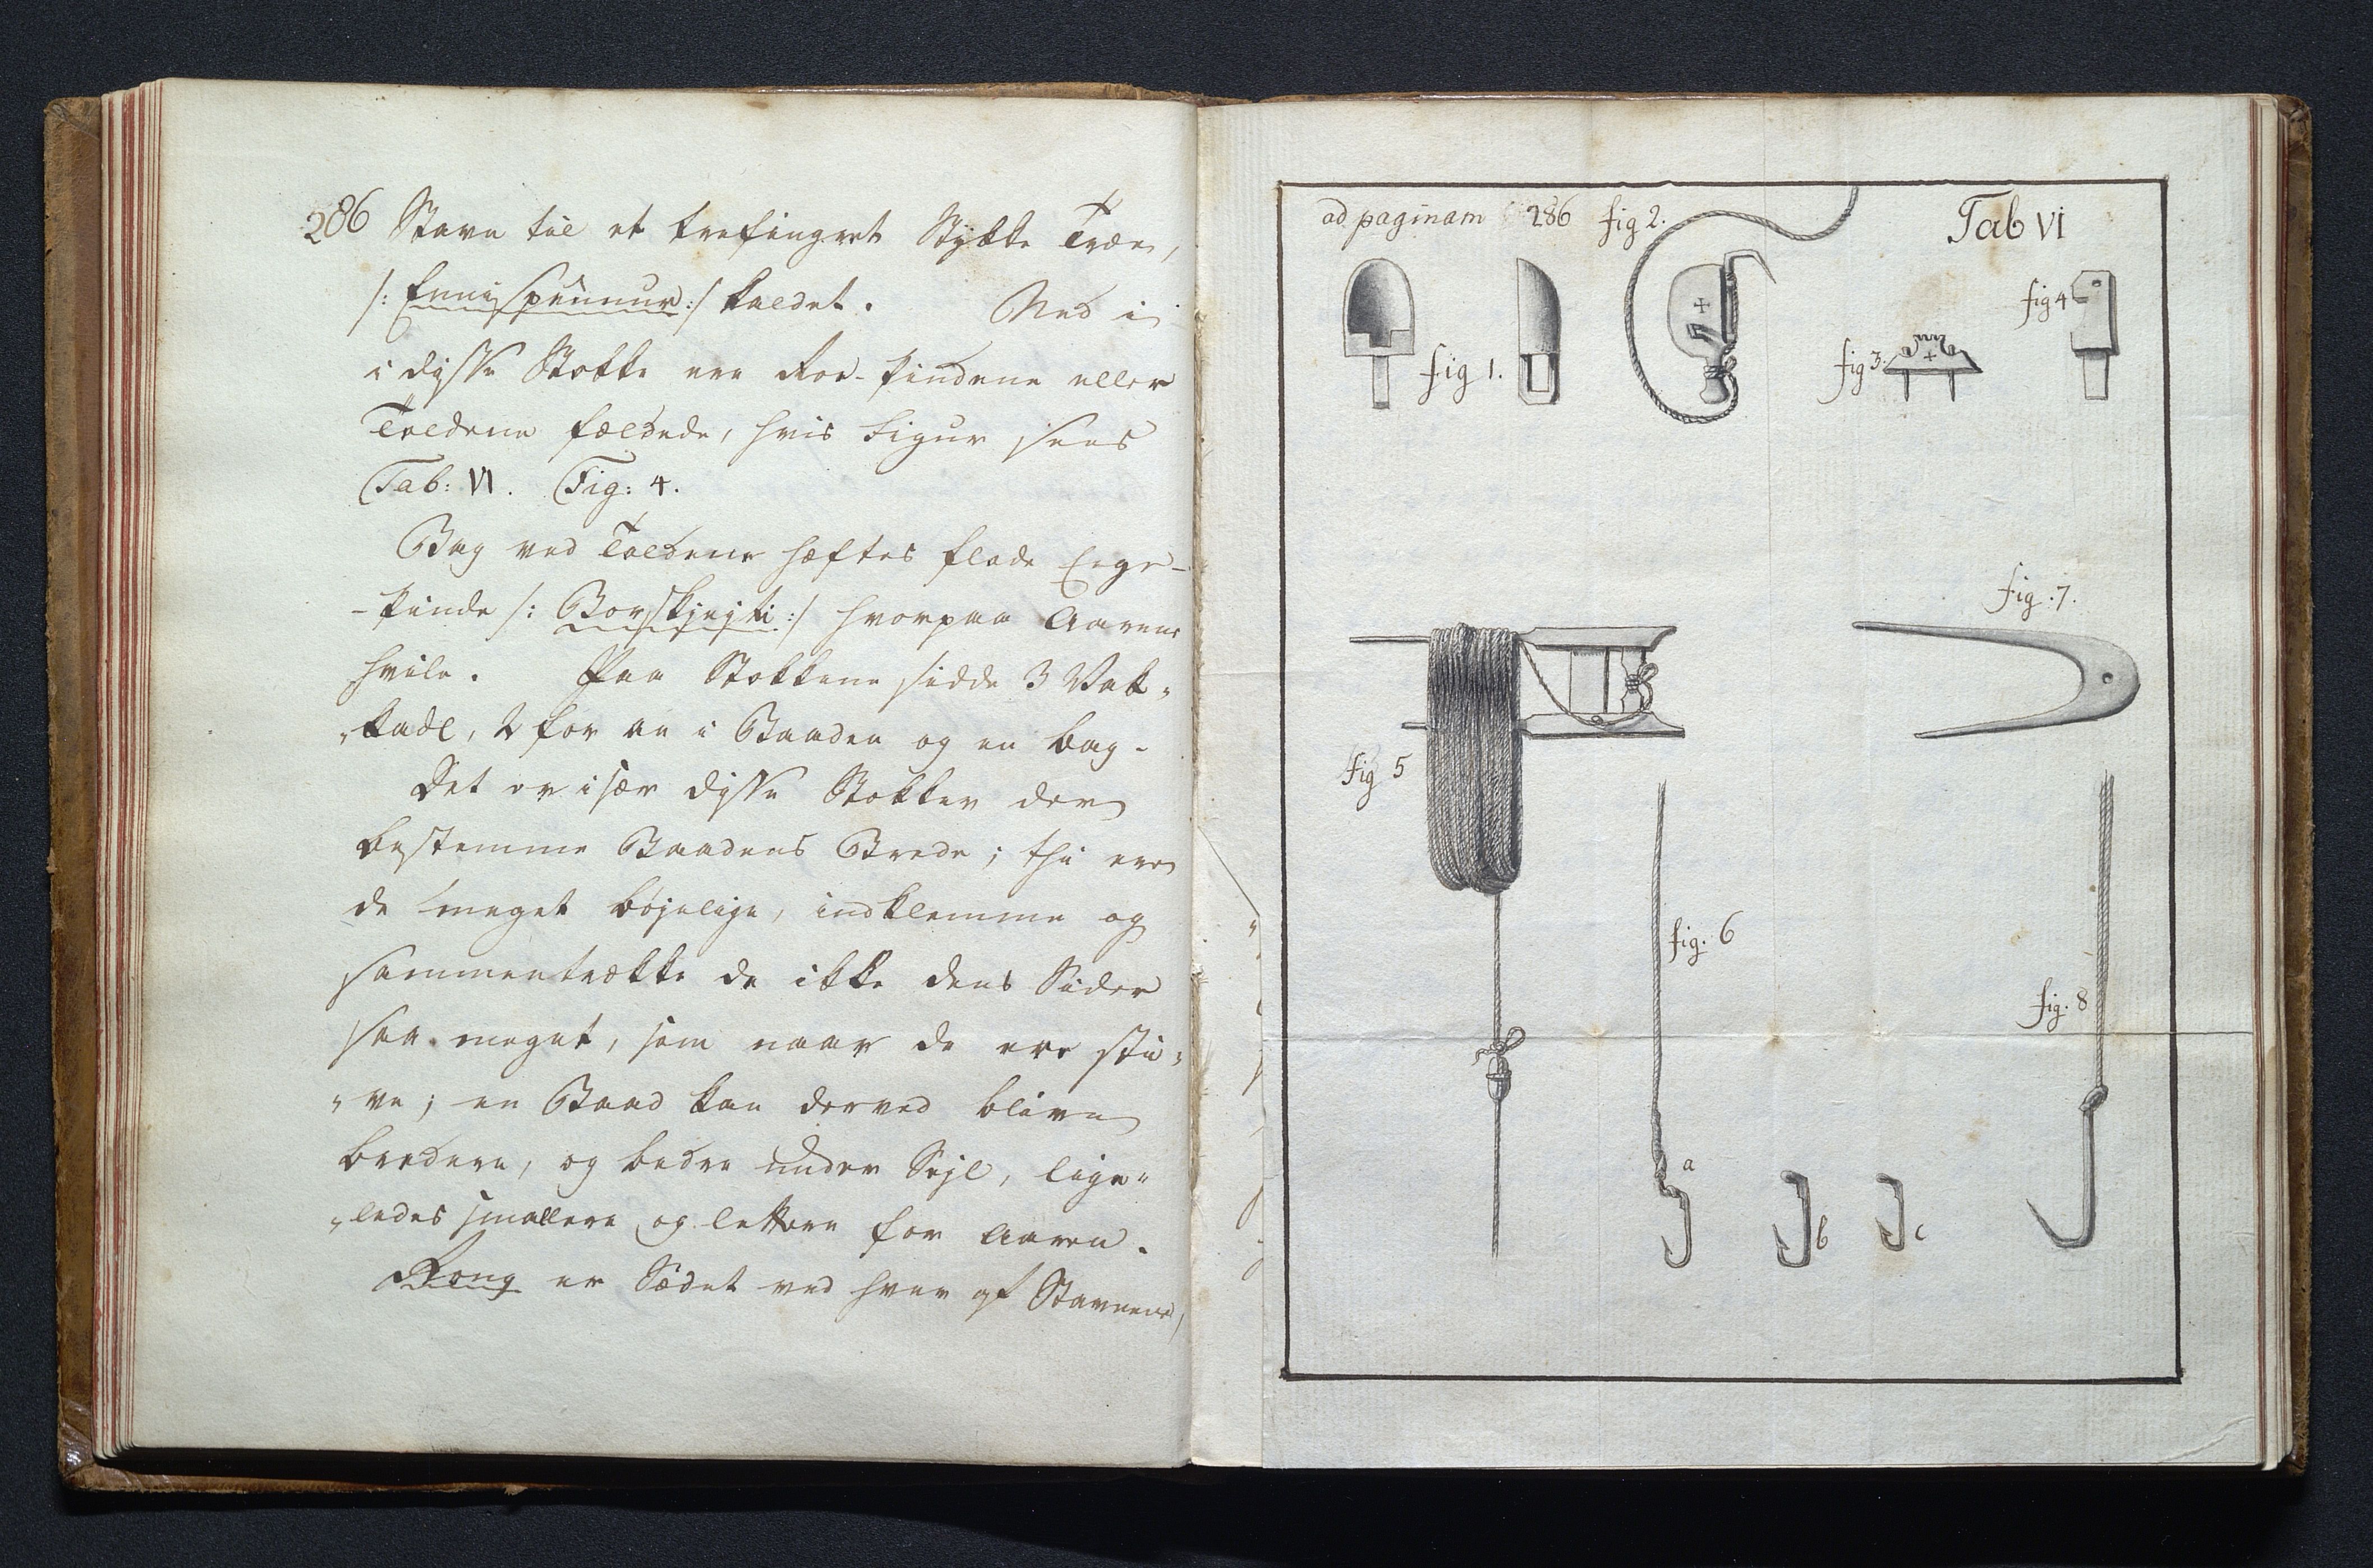 286 Stavn til et trefingret Stykke Træe,
/: Ennispønnur :/ kaldet. Ned i
i disse Stokke ere Roe-Pindene eller
Tollerne fældede, hvis Figur sees
Tab: VI. Fig: 4.
Bag ved Tollene hæftes flade Ege-
-pinde /: Borskjejti :/ hvorpaa Aarene
hvile. Paa Stokkene sidde 3 Vat-
-kadl, 2 for an i Baaden og en bag.
Det er især disse Stokker der
bestemme Baadens Brede; thi ere
de meget bøjelige, indklemme og
sammentrække de ikke dens Sider
saa meget, som naar de ere sti-
-ve; en Baad kan derved blive
bredere, og bedre under Sejl, lige-
-ledes smallere og lettere for Aaren.
Rong er Sædet ved hver af Stavnene,
ad paginam 286 fig 2. Tab VI
fig 4
fig 1. fig 3.
fig. 7.
fig 5
fig. 6
fig. 8
a
b c